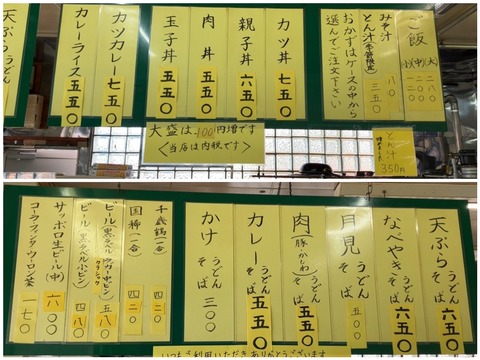 ご飯
(大)
(中)
(小)
みそ汁 八〇
とん汁(冬季限定) 三五〇
おかずはケースの中から
選んでご注文下さい
カツ丼 七五〇
親子丼 六五〇
肉丼 五五〇
玉子丼 五五〇
カツカレー 七五〇
カレーライス 五五〇
天ぷら
大盛は、100円増です
〈当店は内税です〉
とん汁
350円
天ぷら うどん そば 六五〇
なべやき うどん そば 六五〇
月見 うどん そば 五〇〇
肉(豚・かしわ) うどん そば 五五〇
カレー うどん そば 五五〇
かけ うどん そば 三〇〇
千歳鶴(一合) 四二〇
国稀(一合) 四二〇
ビール(黒ラベル・ラガー中ビン) クラシック 五八〇
ビール(黒ラベル小ビン) 四八〇
サッポロ生ビール(中) 六〇〇
コーラ・ファンタ・ウーロン茶 一七〇
いつもご利用いただきありがとうございます